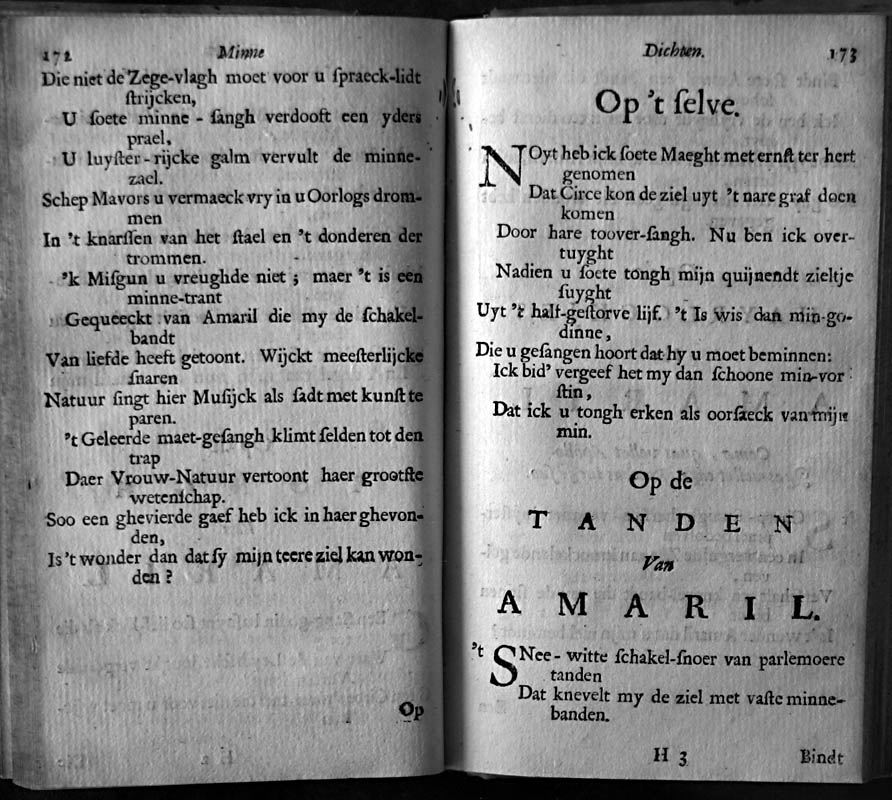 172 Minne
Die niet de Zege-vlagh moet voor u ſpraeck-lidt
ſtrijcken,
U ſoete minne-ſangh verdooft een yders
prael,
U luyſter-rijcke galm vervult de minne-
zael.
Schep Mavors u vermaeck vry in u Oorlogs drom-
men
In 't knarſſen van het ſtael en 't donderen der
trommen.
'k Miſgun u vreughde niet; maer 't is een
minne-trant
Gequeeckt van Amaril die my de ſchakel-
bandt
Van liefde heeft getoont. Wijckt meeſterlijcke
ſnaren
Natuur ſingt hier Muſijck als ſadt met kunſt te
paren.
't Geleerde maet-geſangh klimt ſelden tot den
trap
Daer Vrouw-Natuur vertoont haer grootſte
wetenſchap.
Soo een ghevierde gaef heb ick in haer ghevon-
den,
Is 't wonder dan dat ſy mijn teere ziel kan won-
den?
Op
Dichten. 173
Op 't ſelve.
NOyt heb ick ſoete Maeght met ernſt ter hert
genomen
Dat Circe kon de ziel uyt 't nare graf doen
komen
Door hare toover-ſangh. Nu ben ick over-
tuyght
Nadien u ſoete tongh mijn quijnendt zieltje
ſuyght
Uyt 't half-geſtorve lijf. 't Is wis dan min-go-
dinne,
Die u geſangen hoort dat hy u moet beminnen:
Ick bid' vergeef het my dan ſchoone min-vor
ſtin,
Dat ick u tongh erken als oorſaeck van mijn
min.
Op de
TANDEN
Van
AMARIL.
't SNee-witte ſchakel-ſnoer van parlemoere
tanden
Dat knevelt my de ziel met vaſte minne-
banden.
H 3 Bindt